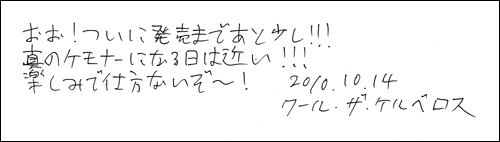 おお！ついに発売まであと少し!!!
真のケモナーになる日は近い!!!
楽しみで仕方ないぞ〜！
2010.10.14
クール・ザ・ケルベロス